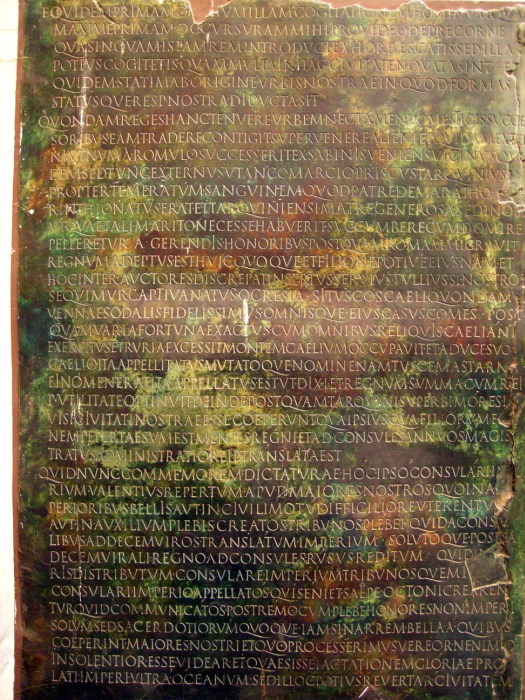 EQVIDEM PRIMAM OMNIVM ILLAM COGITATIONEM HOMINVM QVAM
MAXIME PRIMAM OCCVRSVRAM MIHI PROVIDEO DEPRECOR NE
QVASI NOVAM ISTAM REM INTRODVCI EXHORRESCATIS SED ILLA
POTIVS COGITETIS QVAM MVLTA IN HAC CIVITATE NOVATA SINT ET
QVIDEM STATIM AB ORIGINE VRBIS NOSTRAE IN QVOD FORMAS
STATVSQVE RES P NOSTRA DIDVCTA SIT
QVONDAM REGES HANC TENVERE VRBEM NEC TAMEN DOMESTICIS SVCCE
SORIBVS EAM TRADERE CONTIGIT SVPERVENERE ALIENI ET QVIDAM
NI VT NVMA ROMVLO SVCCESSERIT EX SABINIS VENIENS VICINVS QVI
DEM SED TVNC EXTERNVS VT ANCO MARCIO PRISCVS TARQVINIVS
PROPTER TEMERATVM SANGVINEM QVOD PATRE DEMARATHO
RINTHIO NATVS ERAT ET TARQVINIENSI MATRE GENEROSA SED INO
VT QVAE TALI MARITO NECESSE HABVERIT SVCCVMBERE CVM DOMI RE
PELLERETVR A GERENDIS HONORIBVS POSTQVAM ROMAM MIGRAVIT
REGNVM ADEPTVS EST HVIC QVOQVE ET FILIO NEPOTIVE EIVS NAM ET
HOC INTER AVCTORES DISCREPAT INSERTVS SERVIVS TVLLIVS SI NOSTRO
SEQVIMVR CAPTIVA NATVS OCRESIA SI TVSCOS CAELI QVONDAM
VENNAE SODALIS FIDELISSIMVS OMNISQVE EIVS CASVS COMES POS
QVAM VARIA FORTVNA EXACTVS CVM OMNIBVS RELIQVIS CAELIAN
EXERCITVS ETRVRIA EXCESSIT MONTEM CAELIVM OCCVPAVIT ET A DVCE SVO
CAELIO ITA APPELLITAVIT MVTATOQVE NOMINE NAM TVSCE MASTARN
EI NOMEN ERAT ITA APPELLATVS EST VT DIXI ET REGNVM SVMMA CVM REI
P VTILITATE OPTINVIT DEINDE POSTQVAM TARQVINI SVPERBI MORES I
VISI CIVITATI NOSTRAE ESSE COEPERVNT QVA IPSIVS QVA FILIORVM E
NEMPE PERTAESVM EST MENTES REGNI ET AD CONSVLES ANNVOS MAGIS
TRATVS ADMINISTRATIO REI P TRANSLATA EST
QVID NVNC COMMEMOREM DICTATVRAE HOC IPSO CONSVLARI IM
RIVM VALENTIVS REPERTVM APVD MAIORES NOSTROS QVO IN A
PERIORIBVS BELLIS AVT IN CIVILI MOTV DIFFICILIORE VTERENTVR
AVT IN AVXILIVM PLEBIS CREATOS TRIBVNOS PLEBEI QVID A CONSV
LIBVS AD DECEMVIROS TRANSLATVM IMPERIVM SOLVTOQVE POSTEA
DECEMVIRALI REGNO AD CONSVLES RVSVS REDITVM QVID
RIS DISTRIBVTVM CONSVLARE IMPERIVM TRIBVNOSQVE MI
CONSVLARI IMPERIO APPELLATOS QVI SENI ET SAEPE OCTONI CREAREN
TVR QVID COMMVNICATOS POSTREMO CVM PLEBE HONORES NON IMPERI
SOLVM SED SACERDOTIORVM QVOQVE IAM SI NARREM BELLA A QVIBVS
COEPERINT MAIORES NOSTRI ET QVO PROCESSERIMVS VEREOR NE NIMIO
INSOLENTIOR ESSE VIDEAR ET QVAESISSE IACTATIONEM GLORIAE PRO
LATI IMPERI VLTRA OCEANVM SED ILLOC POTIVS REVERTAR CIVITATEM